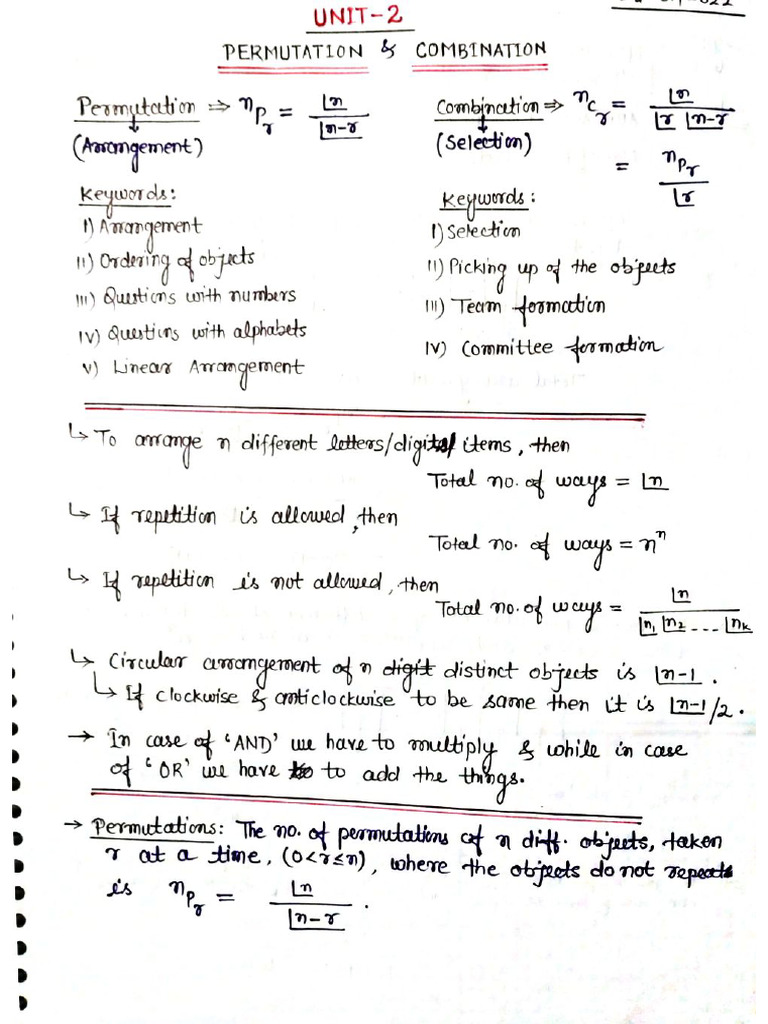 UNIT-2
PERMUTATION & COMBINATION
Permutation ⇒ nPr = ⌊n / ⌊n-r
(Arrangement)
Keywords:
I) Arrangement
II) Ordering of objects
III) Questions with numbers
IV) Questions with alphabets
V) Linear Arrangement
Combination ⇒ nCr = ⌊n / ⌊r ⌊n-r
(Selection)
= nPr / ⌊r
Keywords:
I) Selection
II) Picking up of the objects
III) Team formation
IV) Committee formation
↳ To arrange n different letters/digits/items, then
Total no. of ways = ⌊n
↳ If repetition is allowed, then
Total no. of ways = nⁿ
↳ If repetition is not allowed, then
Total no. of ways = ⌊n / ⌊n1 ⌊n2 --- ⌊nk
↳ Circular arrangement of n digit distinct objects is ⌊n-1.
↳ If clockwise & anticlockwise to be same then it is ⌊n-1/2.
→ In case of 'AND' we have to multiply & while in case
of 'OR' we have to to add the things.
→ Permutations: The no. of permutations of n diff. objects, taken
r at a time, (0<r≤n), where the objects do not repeats
is nPr = ⌊n / ⌊n-r.